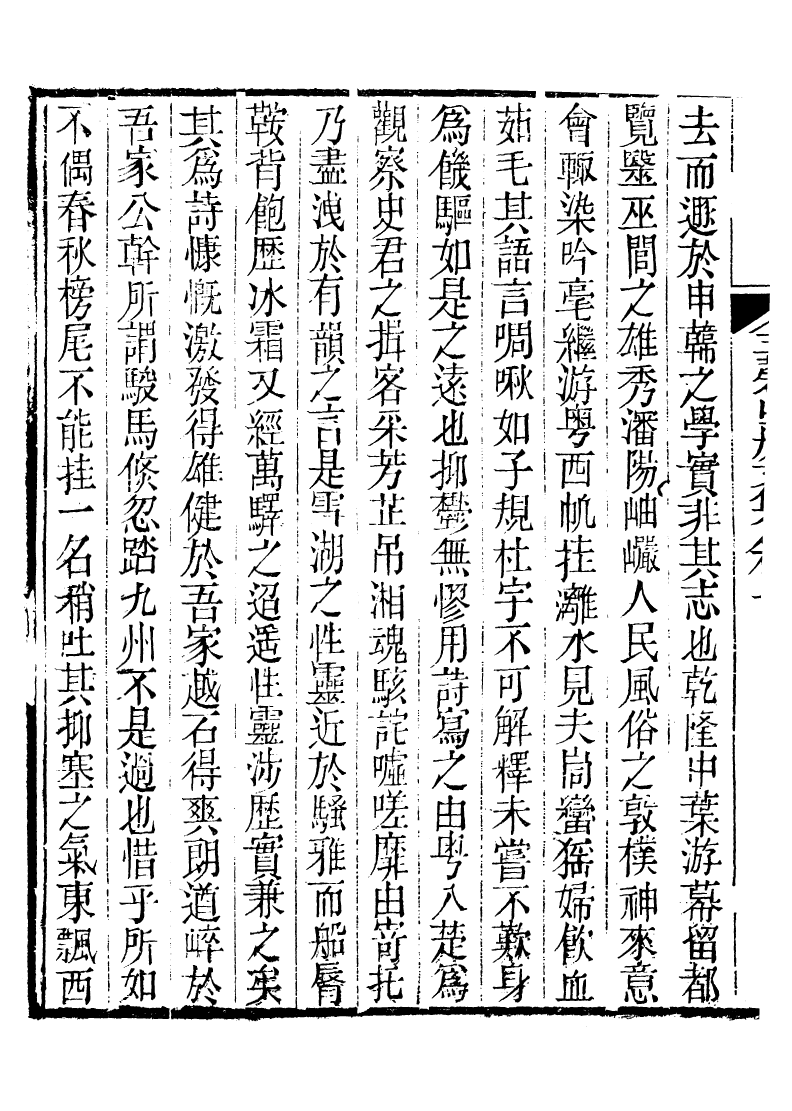 去而遯於申韓之學實非其志也乾隆中葉游幕留都
覽毉巫閭之雄秀瀋陽岫巗人民風俗之敦樸神來意
會輒染吟毫繼游粤西帆挂灕水見夫峝蠻猺婦飲血
茹毛其語言啁啾如子規杜宇不可解釋未嘗不歎身
爲饑驅如是之遠也抑鬱無憀用詩寫之由粤入楚爲
觀察史君之揖客采芳芷吊湘魂駭詫嘘嗟靡由寄托
乃盡洩於有韻之言是雪湖之性靈近於騷雅而船脣
鞍背飽歷冰霜又經萬驛之迢遥性靈涉歷實兼之矣
其爲詩慷慨激發得雄健於吾家越石得爽朗遒崪於
吾家公幹所謂駿馬倏忽踏九州不是過也惜乎所如
不偶春秋榜尾不能挂一名稍吐其抑塞之氣東飄西